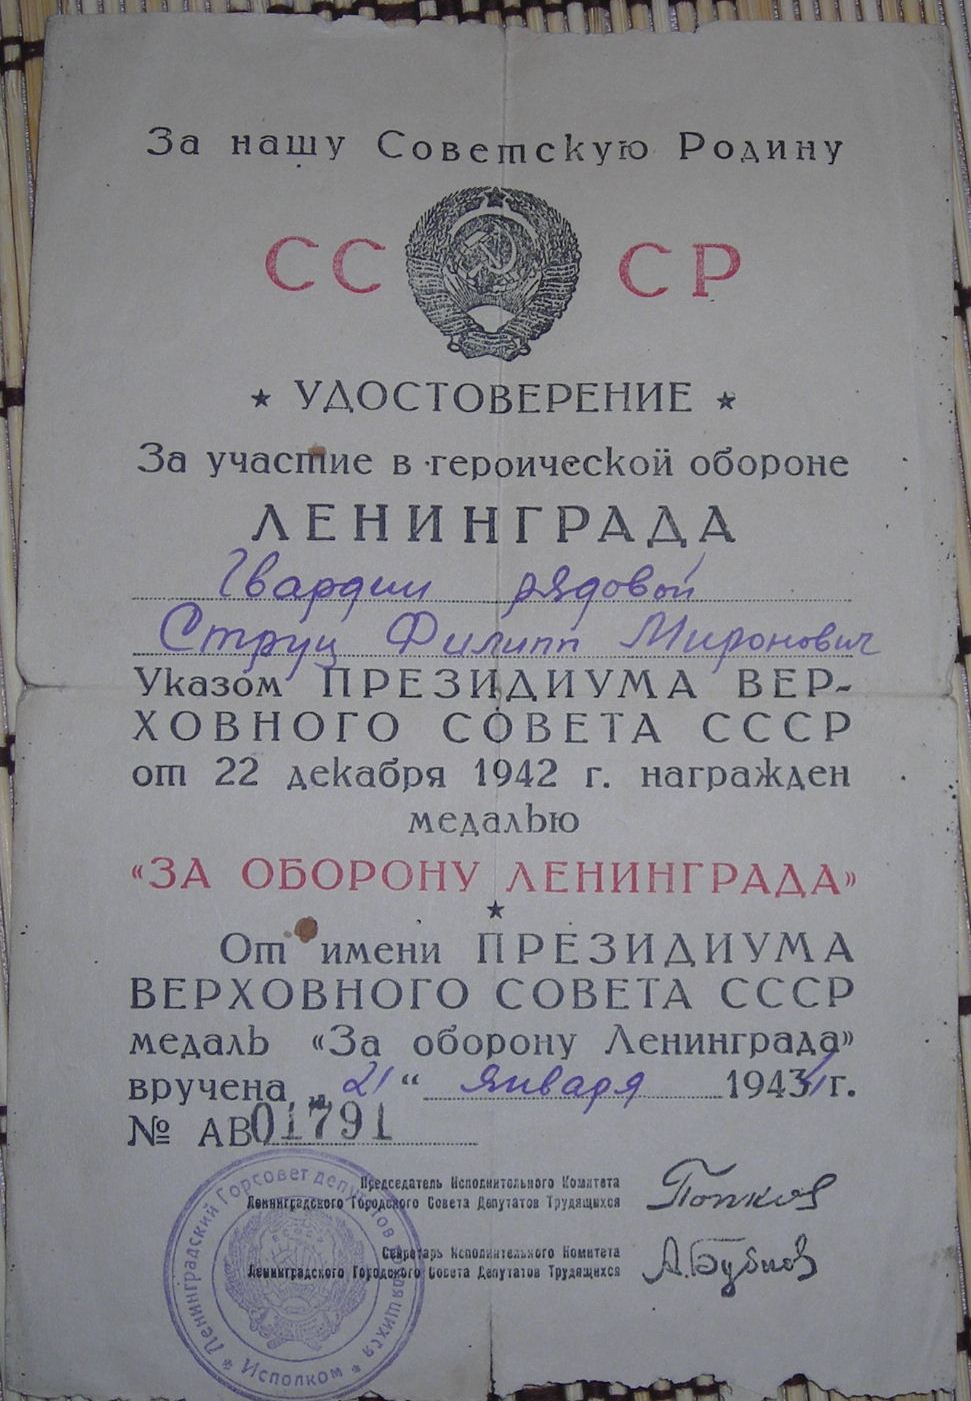 За нашу Советскую Родину
СС СР
★ УДОСТОВЕРЕНИЕ ★
За участие в героической обороне
ЛЕНИНГРАДА
Гвардии рядовой
Струц Филипп Миронович
Указом ПРЕЗИДИУМА ВЕР-
ХОВНОГО СОВЕТА СССР
от 22 декабря 1942 г. награжден
медалью
«ЗА ОБОРОНУ ЛЕНИНГРАДА»
★
От имени ПРЕЗИДИУМА
ВЕРХОВНОГО СОВЕТА СССР
медаль «За оборону Ленинграда»
вручена „21“ января 1944 г.
№ АВ 01791
Председатель Исполнительного Комитета
Ленинградского Городского Совета Депутатов Трудящихся
Попков
Секретарь Исполнительного Комитета
Ленинградского Городского Совета Депутатов Трудящихся
А.Бубнов
Ленинградский Горсовет депутатов трудящихся
★ Исполком ★